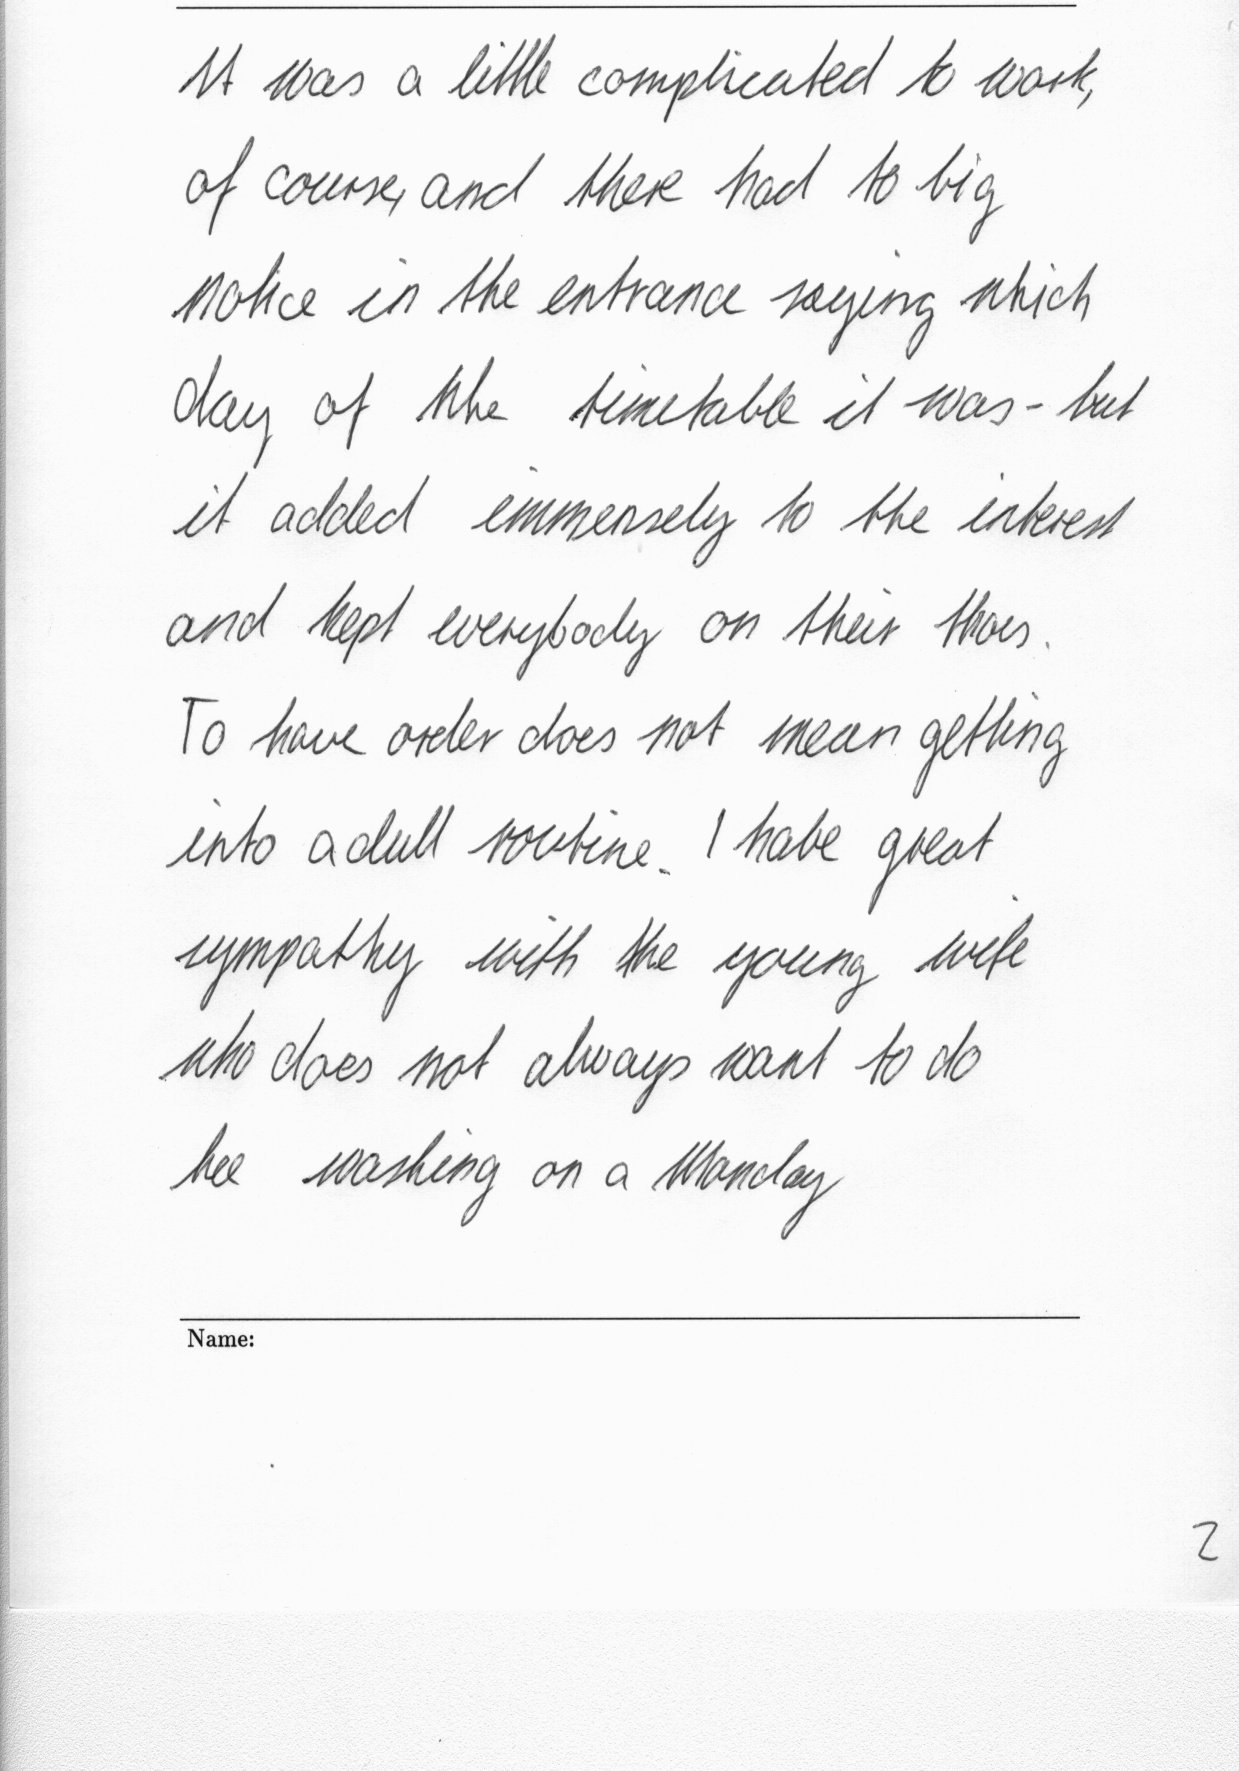 It was a little complicated to work,
of course, and there had to big
notice in the entrance saying which
day of the timetable it was - but
it added immensely to the interest
and kept everybody on their thoes.
To have order does not mean getting
into a dull routine. I habe great
sympathy with the young wife
who does not always want to do
hee washing on a Monday
Name:
2